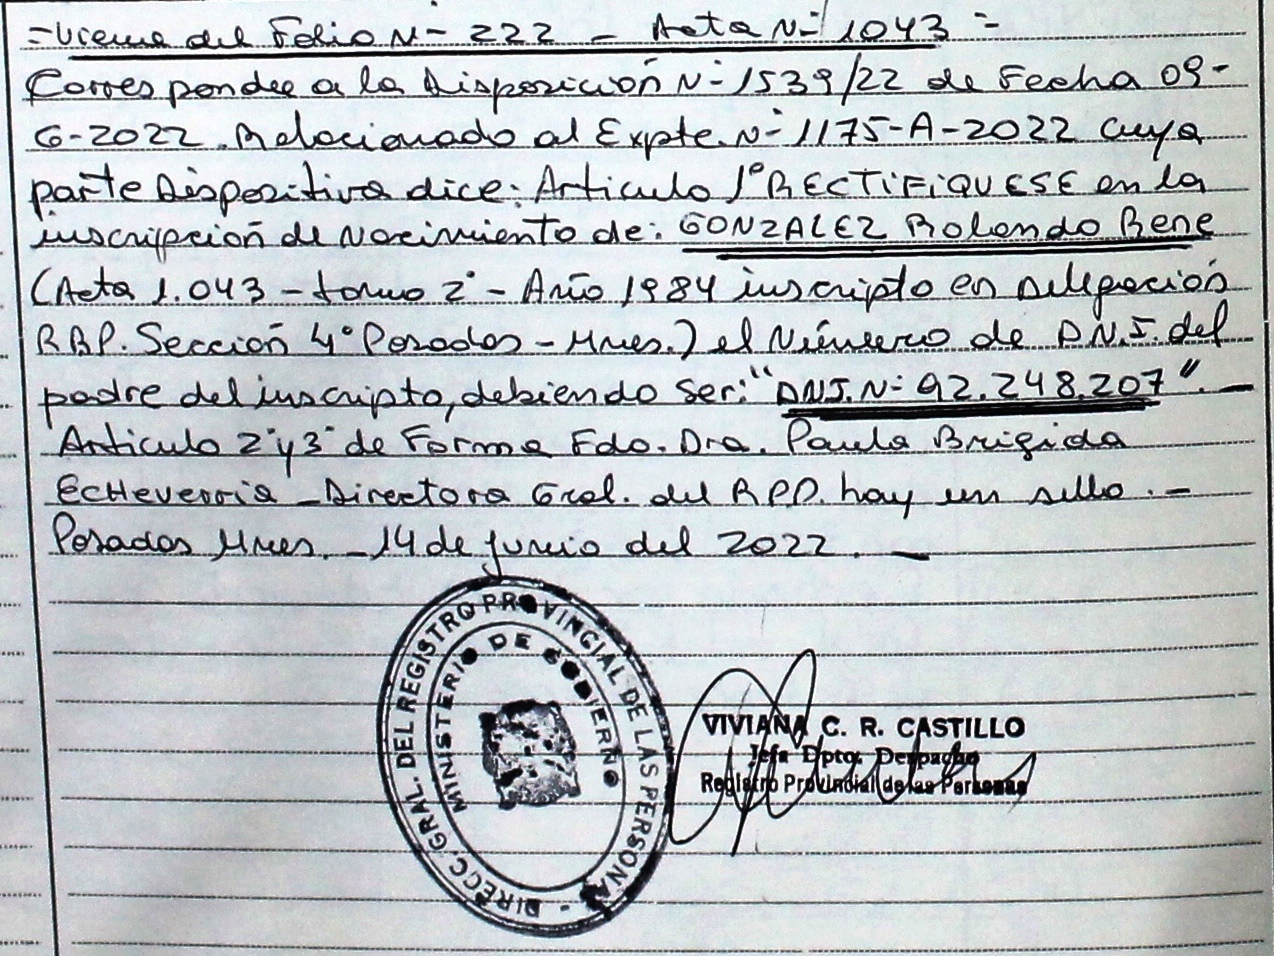 =Viene del Folio N- 222 - Acta N- 1043 =
Corresponde a la Disposición N- 1539/22 de Fecha 09-
6-2022. Relacionado al Expte. N- 1175-A-2022 cuya
parte Dispositiva dice: Articulo 1° RECTIFIQUESE en la
inscripción de Nacimiento de: GONZALEZ Rolando Rene
(Acta 1.043 - tomo 2° - Año 1984 inscripto en Delegación
R.P.P. Sección 4° Posadas - Mnes.) el Número de D.N.I. del
padre del inscripto, debiendo ser: "DNI. N- 92.248.207". -
Articulo 2° y 3° de Forma Fdo. Dra. Paula Brigida
Echeverria - Directora Gral. del R.P.P. hay un sello. -
Posadas Mnes. - 14 de junio del 2022. -
DIRECC. GRAL. DEL REGISTRO PROVINCIAL DE LAS PERSONAS -
MINISTERIO DE GOBIERNO
VIVIANA C. R. CASTILLO
Jefa Dpto. Despacho
Registro Provincial de las Personas